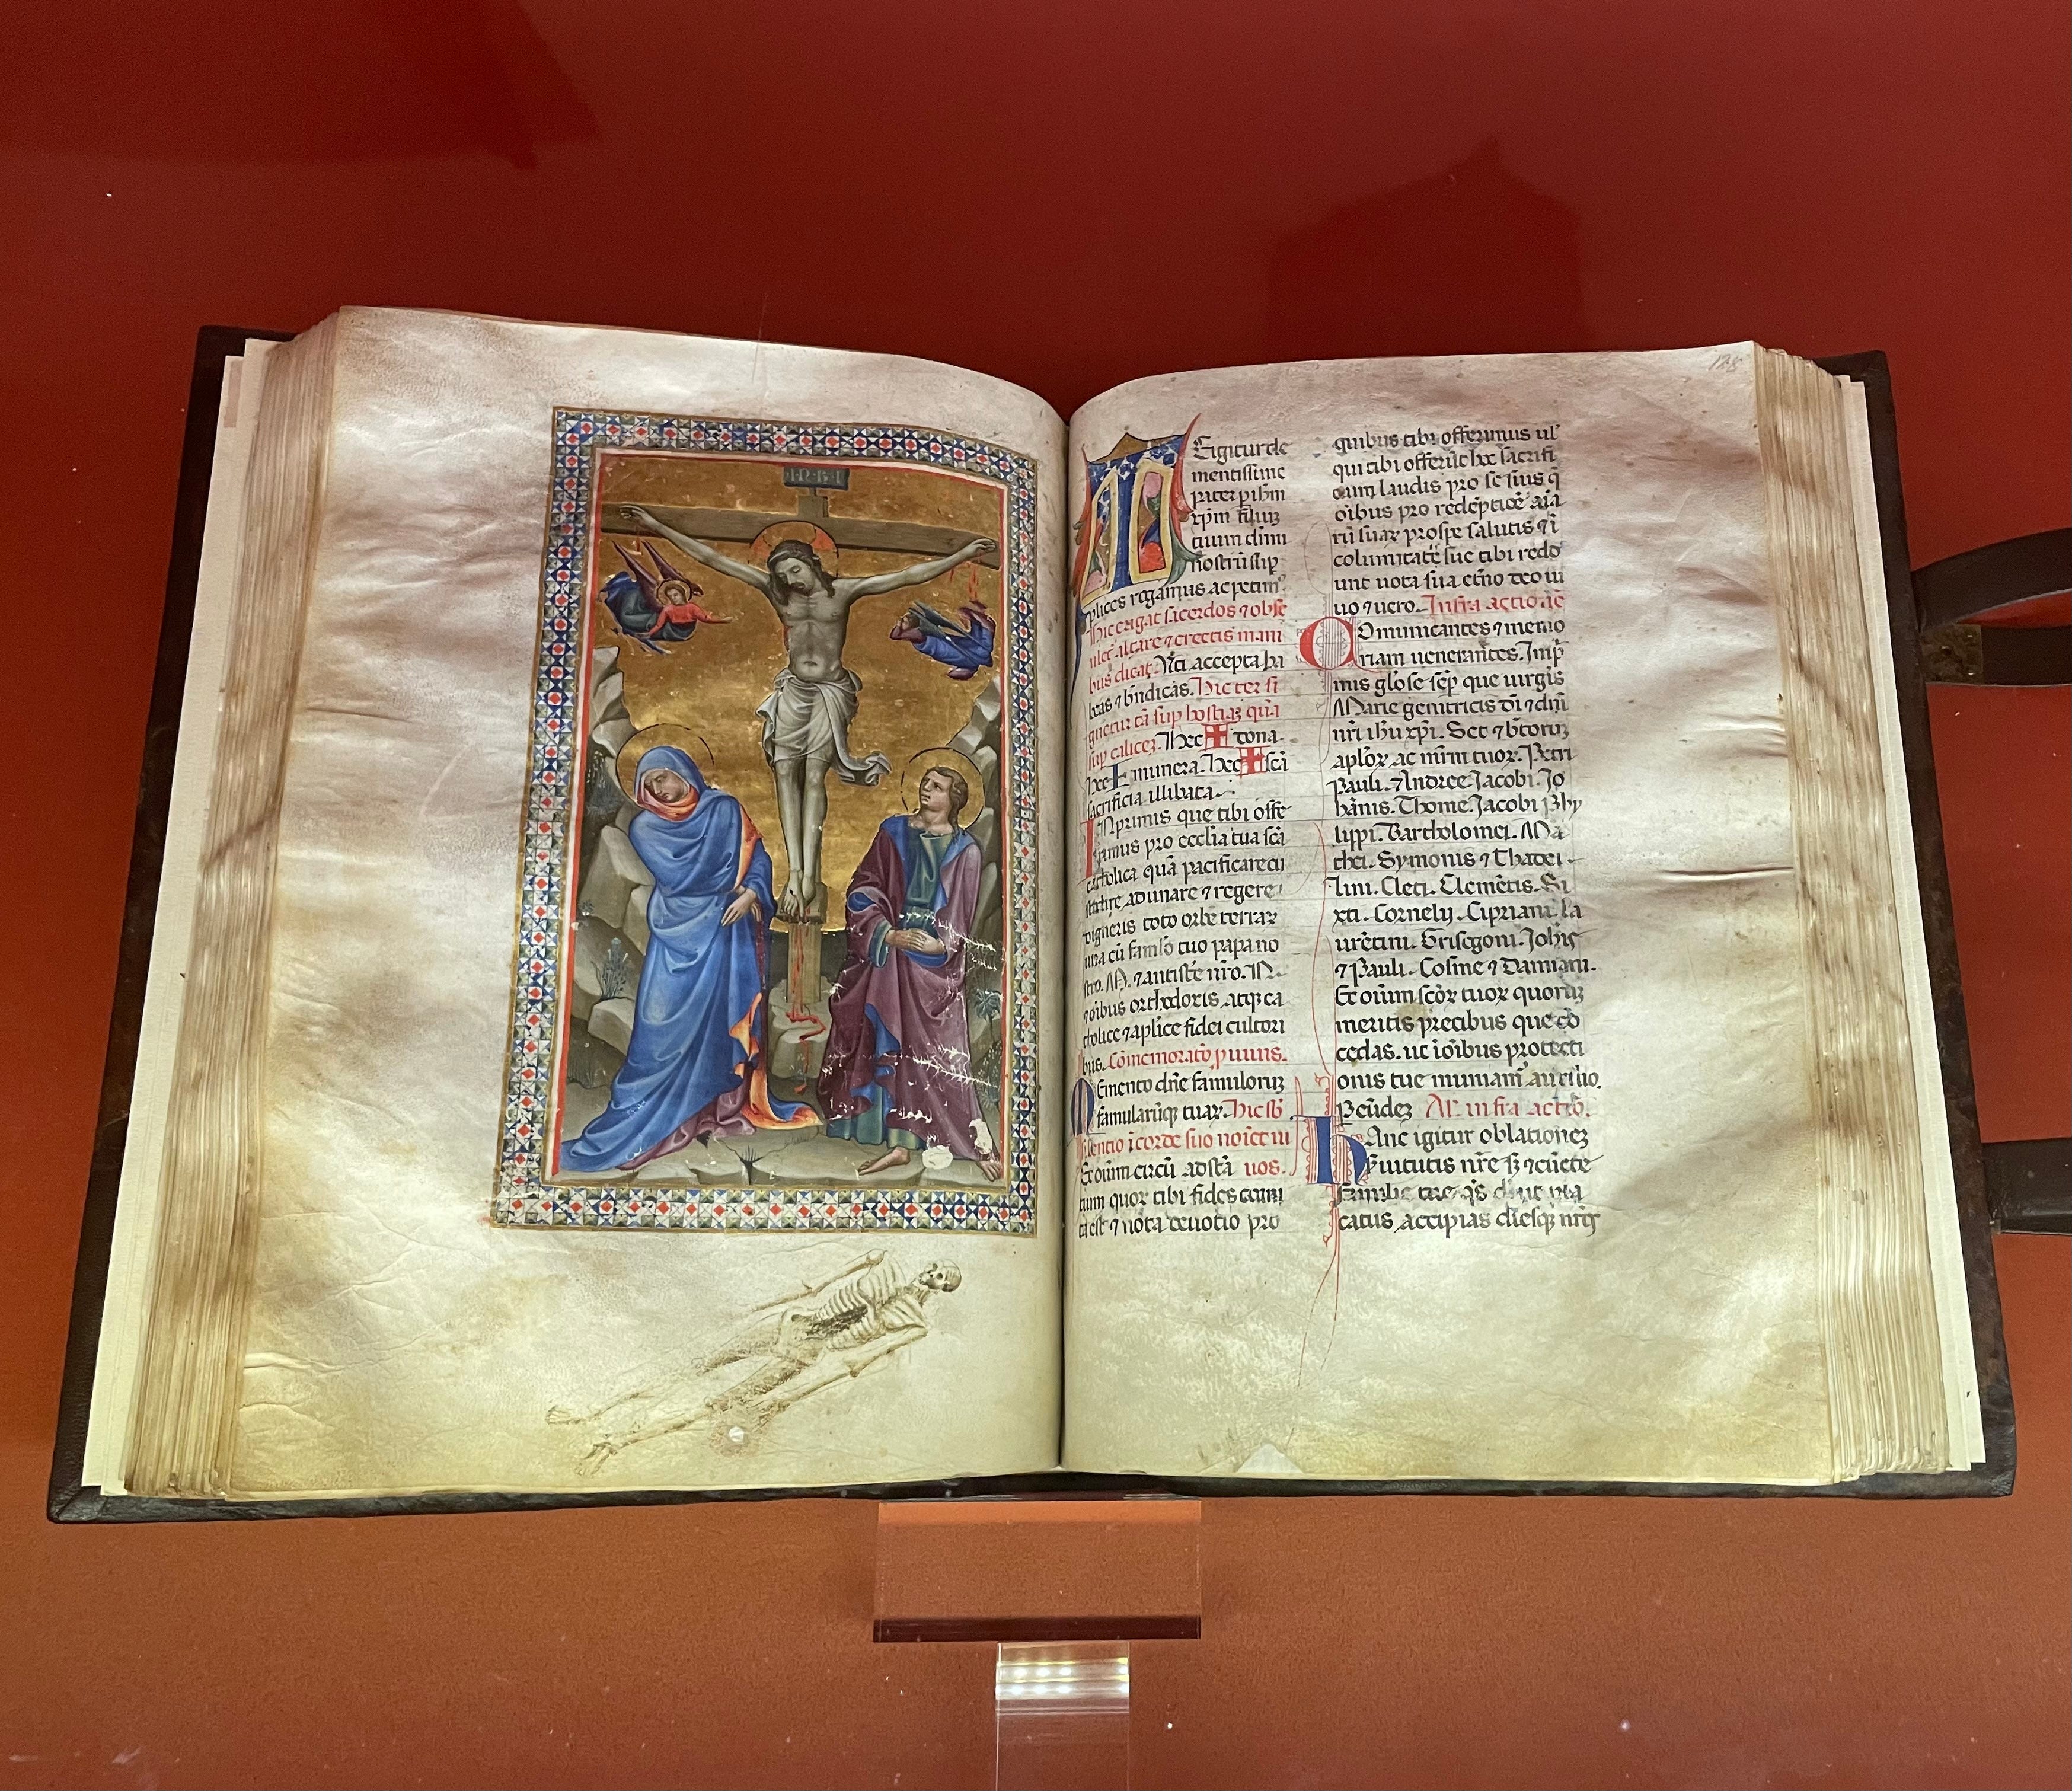 I·N·R·I
128
TE igitur cle
mentissime
pater p ihm̄
xp̄m filiuȝ
tuum dn̄m
nostrū sup
plices rogamus ac petim⁹.
Hic erigat sacerdos ⁊ obse
ulet altare ⁊ erectis mani
bus dicat. Uti accepta ha
beas ⁊ bn̄dicas. Hic ter si
gnetur tā sup hostiaȝ quā
sup caliceȝ. Hec ✠ dona.
hec ✠ munera. Hec ✠ scā
sacrificia illibata.
INprimis que tibi offe
rimus pro ecclia tua scā
catholica quā pacificare cu
stodire adunare ⁊ regere
digneris toto orbe terraꝝ
una cū famlo tuo papa no
stro .N. ⁊ antiste nr̄o. N.
⁊ oībus orthodoxis atqꝫ ca
tholice ⁊ aplice fidei cultori
bus. Cōmemoratō p uiuis.
MEmento dn̄e famuloruȝ
famularūqꝫ tuaꝝ. Hic sb
silentio ī corde suo noīet ui
Et oīum circū adstā uos.
tium quoꝝ tibi fides cogni
ta est ⁊ nota deuotio pro
quibus tibi offerimus ul̄
qui tibi offerūt hoc sacrifi
cium laudis pro se suis q̄
oībus pro redēptiōe aīa
rū suaꝝ pro spe salutis ⁊ ī
columitatē sue tibi redd
unt uota sua et̄no deo ui
uo ⁊ uero. Infra actionē
COmunicantes ⁊ memo
riam uenerantes. Imp̄
mis gl̄ose sēp que uirgīs
Marie genitricis dī ⁊ dn̄i
nr̄i ihu xp̄i. Sec ⁊ bt̄oruȝ
aploꝝ ac mr̄m tuoꝝ. Petri
Pauli. ⁊ Andree Jacobi. Jo
hānis. Thome. Jacobi Phy
lippi. Bartholomei. Ma
thei. Symonis ⁊ Thadei.
Lini. Cleti. Clemētis. Si
xti. Cornely. Cipriani. La
uretini. Grisogoni. Johīs
⁊ Pauli. Cosme ⁊ Damiani.
Et oīum scōꝝ tuoꝝ quoruȝ
meritis precibus que cō
cedas. ut ī oībus protecti
onis tue muniam̄ auxilio.
P eūdeȝ Al̄ infra actiō.
HAnc igitur oblationeȝ
s̄uitutis nr̄e s̄ȝ ⁊ cūcte
familie tue. qs̄ dn̄e pla
catus accipias diesqꝫ nr̄os